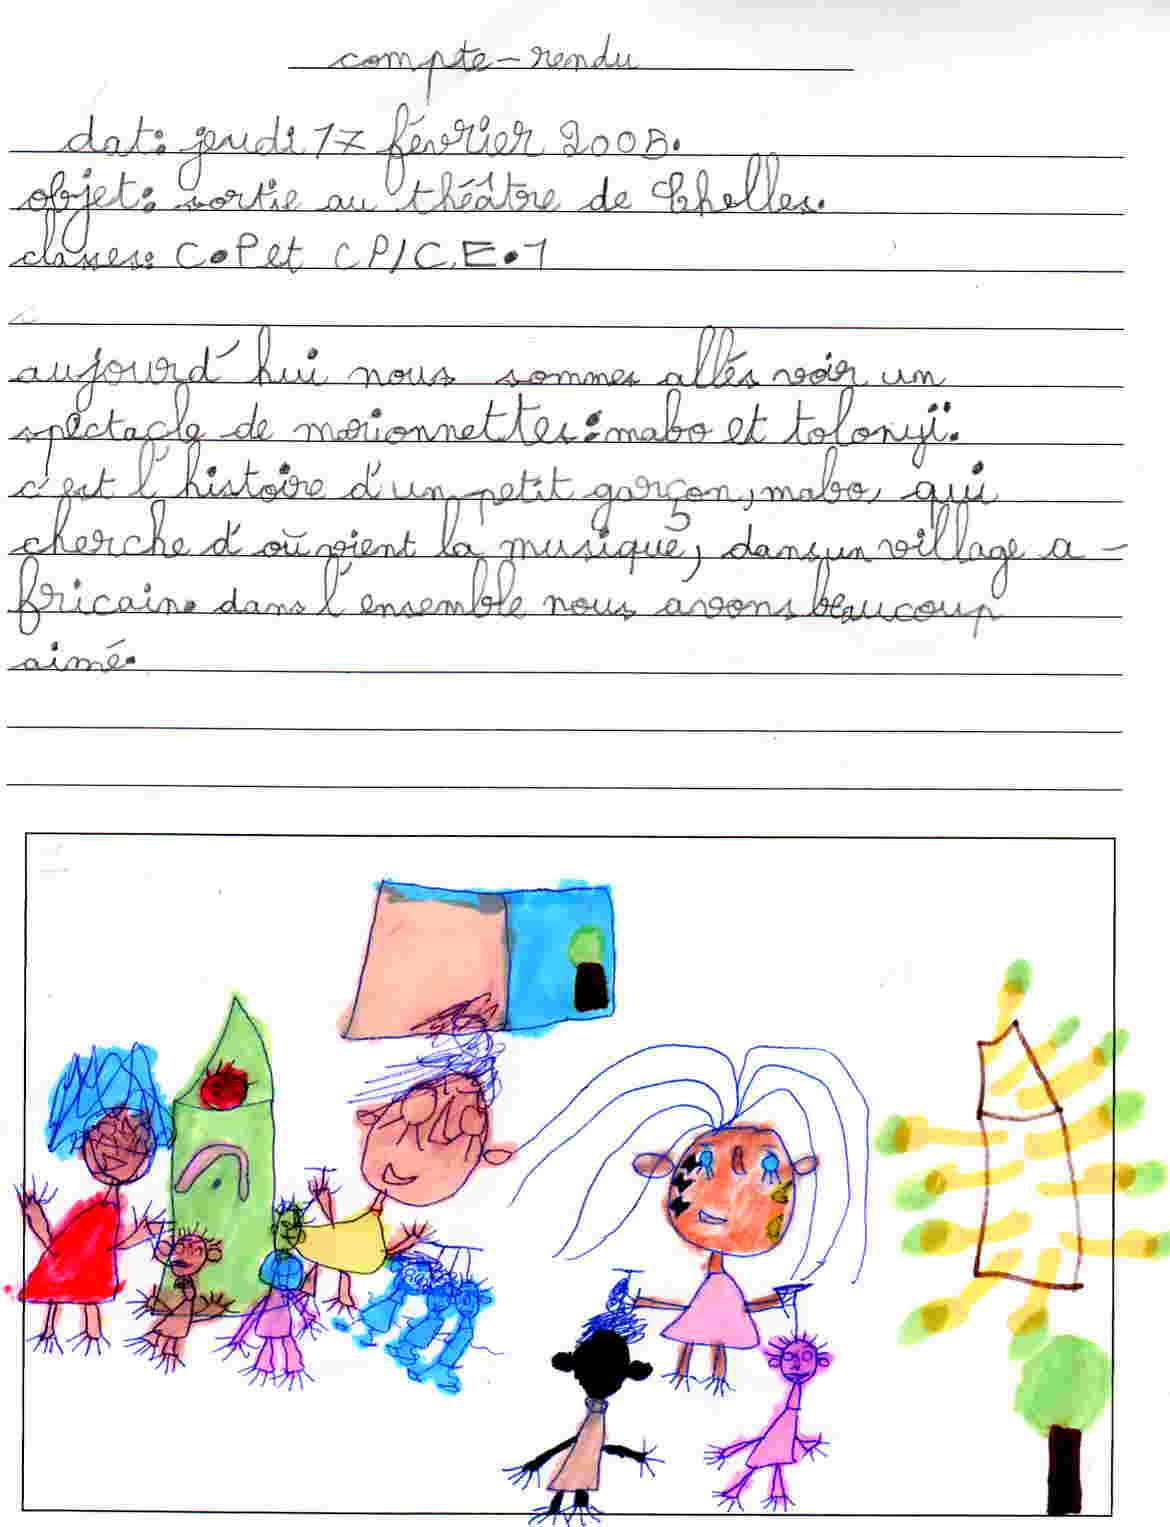 compte-rendu
dat: jeudi 17 février 2005.
objet: sortie au théâtre de Chelles.
classes: C.P et CP/C.E.1
aujourd'hui nous sommes allés voir un
spectacle de marionnettes: mabo et tolonyï.
c'est l'histoire d'un petit garçon, mabo, qui
cherche d'où vient la musique, dans un village a-
fricain. dans l'ensemble nous avons beaucoup
aimé.